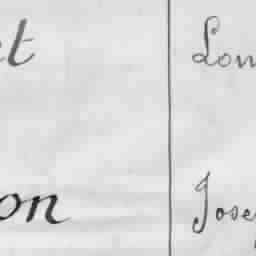 et Lou
on Jose